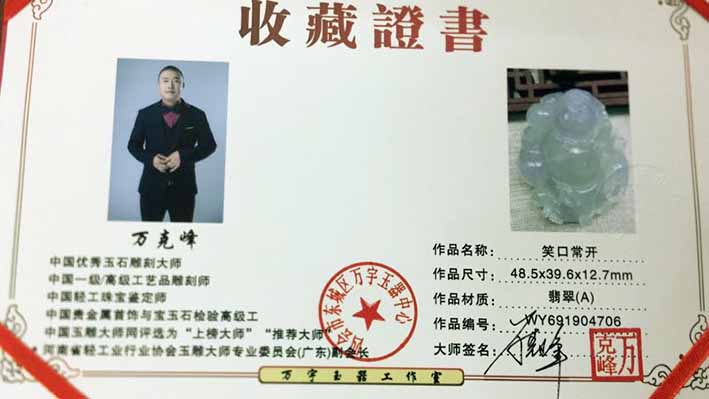 收藏證書
万克峰
中国优秀玉石雕刻大师
中国一级/高级工艺品雕刻师
中国轻工珠宝鉴定师
中国贵金属首饰与宝玉石检验高级工
中国玉雕大师网评选为“上榜大师”“推荐大师”
河南省轻工业行业协会玉雕大师专业委员会(广东)副会长
会市东城区万宇玉器中心
作品名称: 笑口常开
作品尺寸: 48.5x39.6x12.7mm
作品材质: 翡翠(A)
作品编号: WY691904706
大师签名: 万克峰
万克峰
万宇玉器工作室